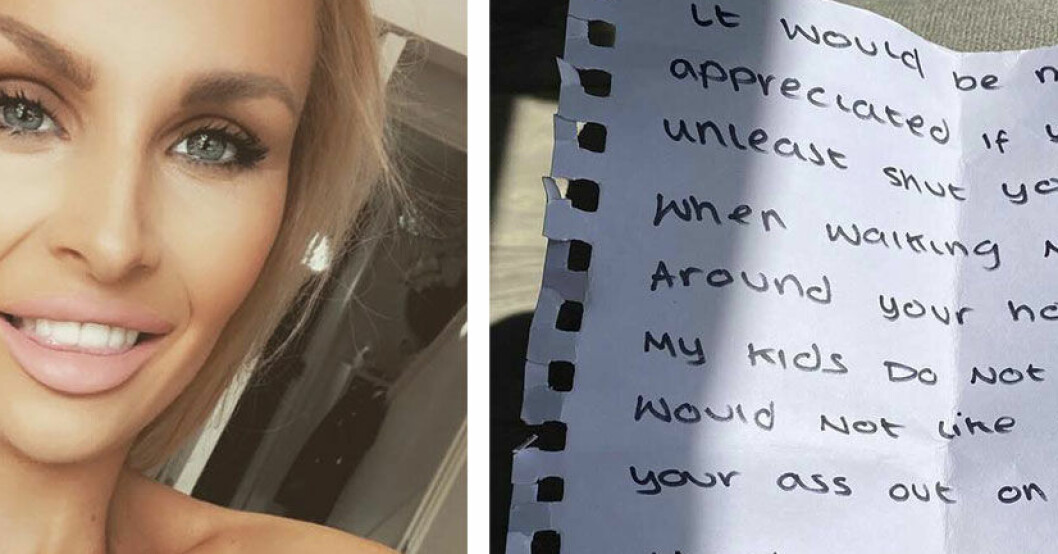 It would be
appreciated if
unleast shut
when walking
Around your
My kids Do Not
Would Not like
your ass out on